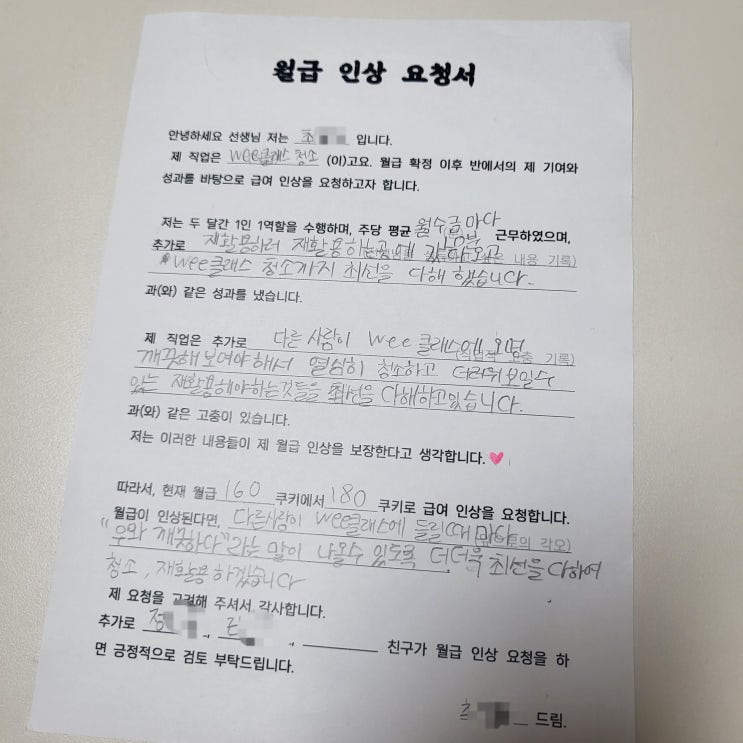 월급 인상 요청서
안녕하세요 선생님 저는 최 입니다.
제 직업은 wee클래스 청소 (이)고요. 월급 확정 이후 반에서의 제 기여와
성과를 바탕으로 급여 인상을 요청하고자 합니다.
저는 두 달간 1인 1역할을 수행하며, 주당 평균 월수금마다 근무하였으며,
추가로 재활용하러 재활용하는곳에 내용 기록)
wee클래스 청소까지 최선을 다해 했습니다.
과(와) 같은 성과를 냈습니다.
제 직업은 추가로 다른 사람이 wee 클래스에 오면 고충 기록)
깨끗해 보여야 해서 열심히 청소하고 더러워 보일수
있는 재활용해야하는것들을 최선을 다해하고있습니다.
과(와) 같은 고충이 있습니다.
저는 이러한 내용들이 제 월급 인상을 보장한다고 생각합니다.
따라서, 현재 월급 160 쿠키에서 180 쿠키로 급여 인상을 요청합니다.
월급이 인상된다면, 다른사람이 wee클래스에 들릴때 마다 각오)
"우와 깨끗하다"라는 말이 나올수 있도록 더더욱 최선을 다하여
청소, 재활용 하겠습니다
제 요청을 고려해 주셔서 감사합니다.
추가로 정 , , 친구가 월급 인상 요청을 하
면 긍정적으로 검토 부탁드립니다.
드림.